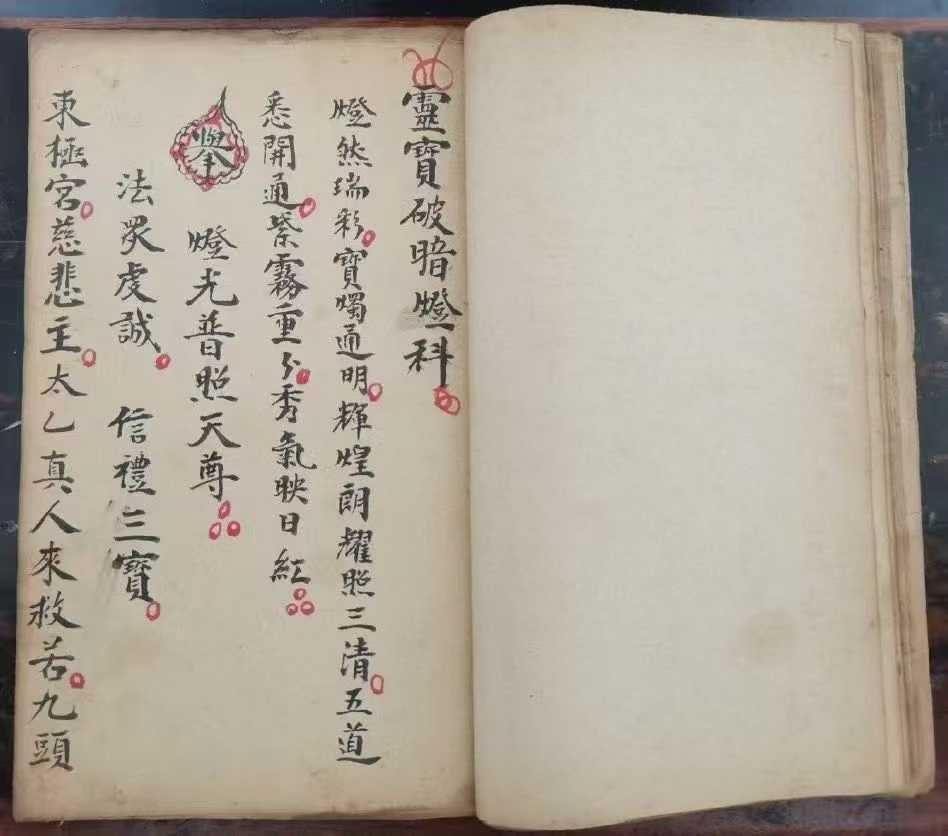 靈寶破暗燈科
燈然瑞彩寶燭通明輝煌朗耀照三清五道
悉開通紫霧重分秀氣映日紅
舉 燈光普照天尊
法眾虔誠 信禮三寶
東極宮慈悲主太乙真人來救苦九頭